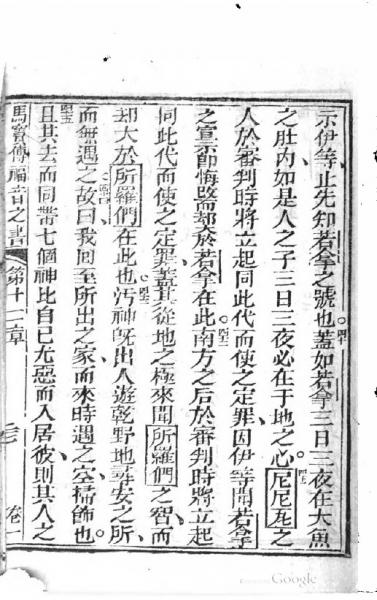 示伊等、止先知若拿之號也。四十蓋如若拿三日三夜在大魚
之肚內、如是人之子三日三夜必在于地之心。四一尼尼瓦之
人於審判時將立起同此代而使之定罪、因伊等聞若拿
之宣示即悔却大於若拿在此。四二南方之后於審判時將立起
同此代而使之定罪、蓋其從地之極來聞所羅們之智、而
却大於所羅們在此也。四三污神旣出人遊乾野地尋安之所、
而無遇之、四四故曰、我回至所出之家、而來時遇之空、掃飾也。
四五且其去而同帶七個神比自己尤惡、而入居彼、則其人之
馬竇傳福音之書 第十二章 卷一
Google